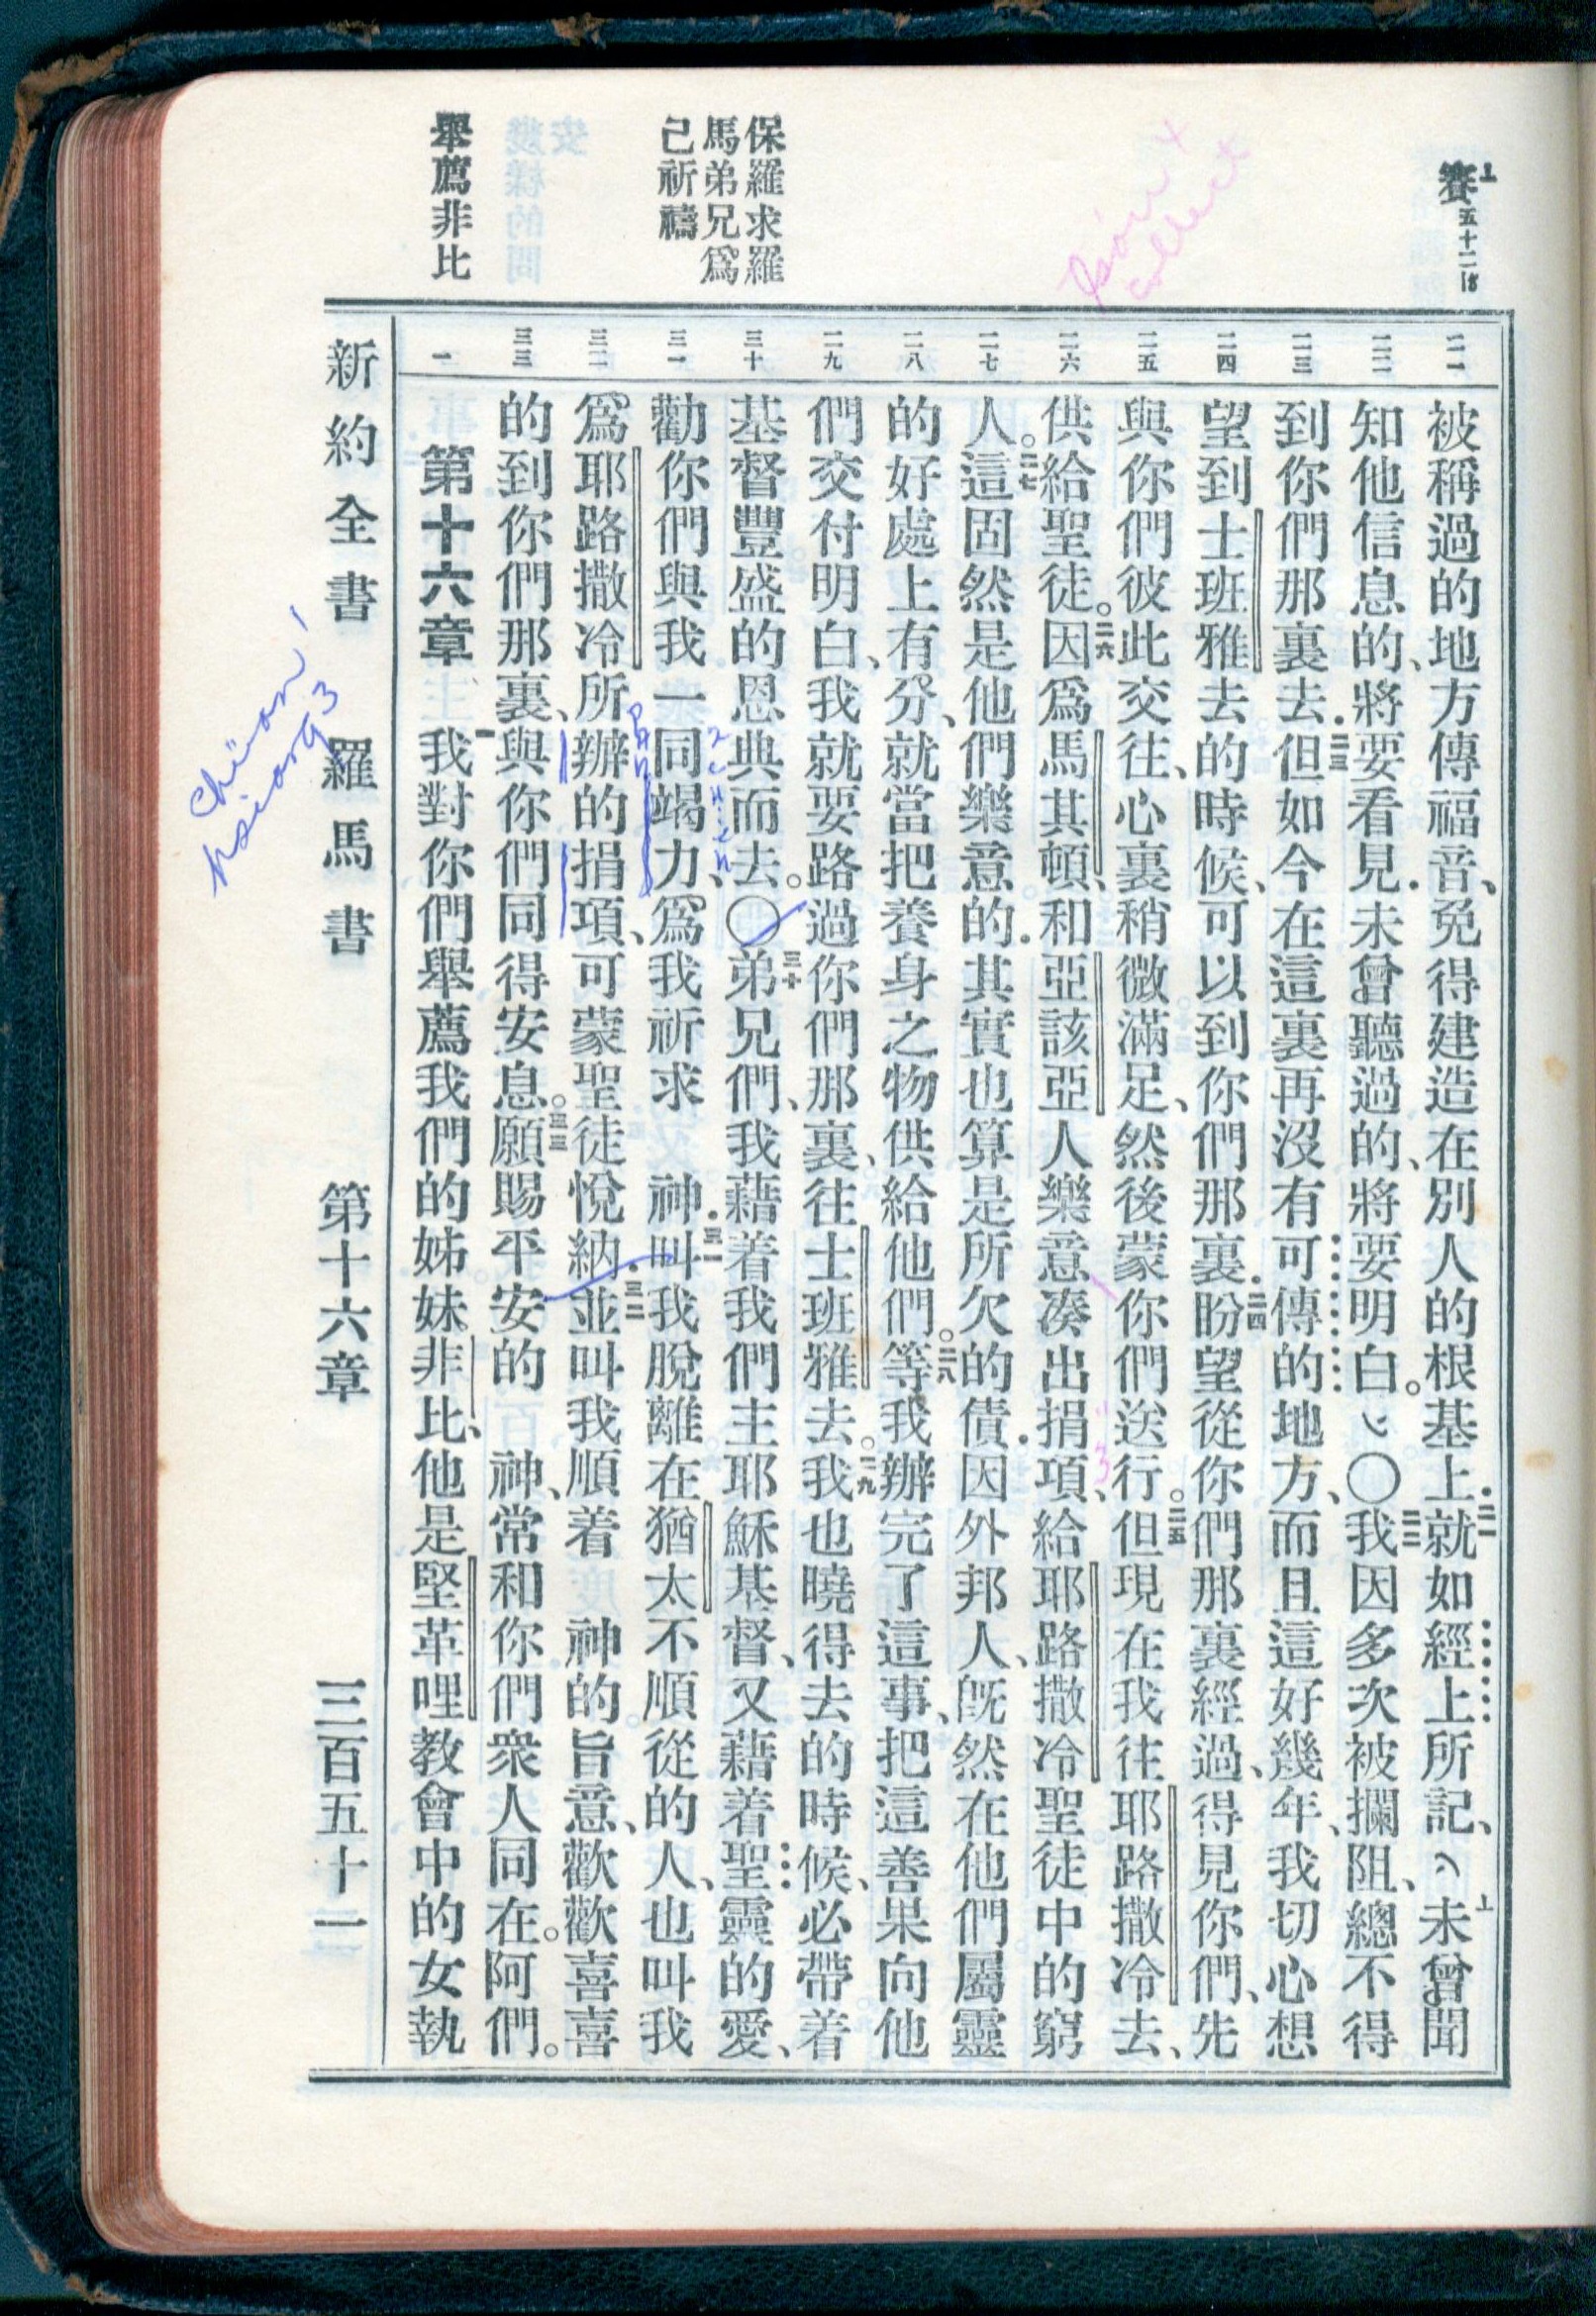 賽五十二15
保羅求羅
馬弟兄爲
己祈禱
舉薦非比
二一
二二
二三
二四
二五
二六
二七
二八
二九
三十
三一
三二
三三
一
被稱過的地方傳福音、免得建造在別人的根基上．二一就如經上所記、（上未曾聞
知他信息的、將要看見．未曾聽過的、將要明白。）〇二二我因多次被攔阻、總不得
到你們那裏去．二三但如今在這裏再沒有可傳的地方、而且這好幾年、我切心想
望到士班雅去的時候、可以到你們那裏．二四盼望從你們那裏經過、得見你們、先
與你們彼此交往、心裏稍微滿足、然後蒙你們送行。二五但現在我往耶路撒冷去、
供給聖徒。二六因爲馬其頓、和亞該亞人樂意凑出捐項、給耶路撒冷聖徒中的窮
人。二七這固然是他們樂意的．其實也算是所欠的債．因外邦人、旣然在他們屬靈
的好處上有分、就當把養身之物供給他們。二八等我辦完了這事、把這善果向他
們交付明白、我就要路過你們那裏、往士班雅去。二九我也曉得去的時候、必帶着
基督豐盛的恩典而去。〇三十弟兄們、我藉着我們主耶穌基督、又藉着聖靈的愛、
勸你們與我一同竭力、爲我祈求　神．三一叫我脫離在猶太不順從的人、也叫我
爲耶路撒冷所辦的捐項、可蒙聖徒悅納．三二並叫我順着　神的旨意、歡歡喜喜
的到你們那裏、與你們同得安息。三三願賜平安的　神、常和你們衆人同在。阿們。
第十六章　一我對你們舉薦我們的姊妹非比、他是堅革哩教會中的女執
新約全書　羅馬書　第十六章　三百五十一
chüan'
hsiang3